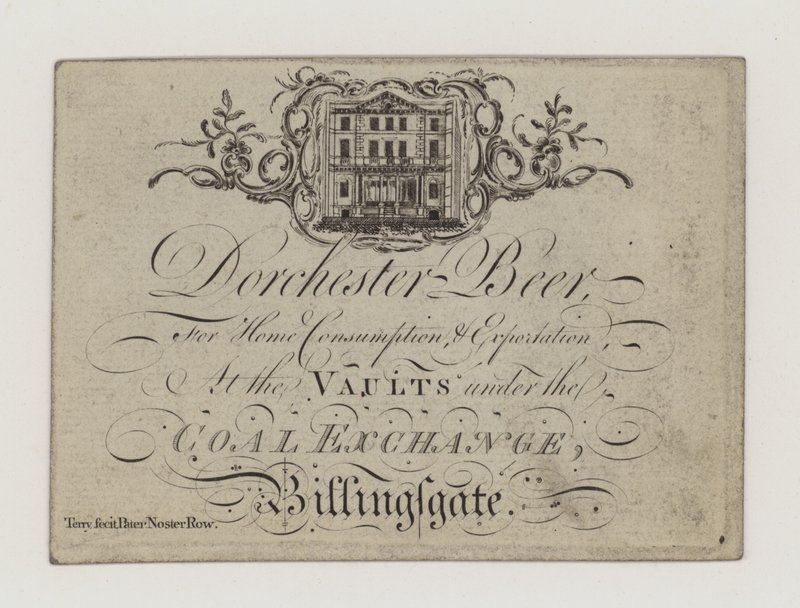 Dorchester-Beer,
For Home Consumption, & Exportation,
At the VAULTS under the
COAL EXCHANGE,
Billingſgate.
Terry fecit Pater Noster Row.